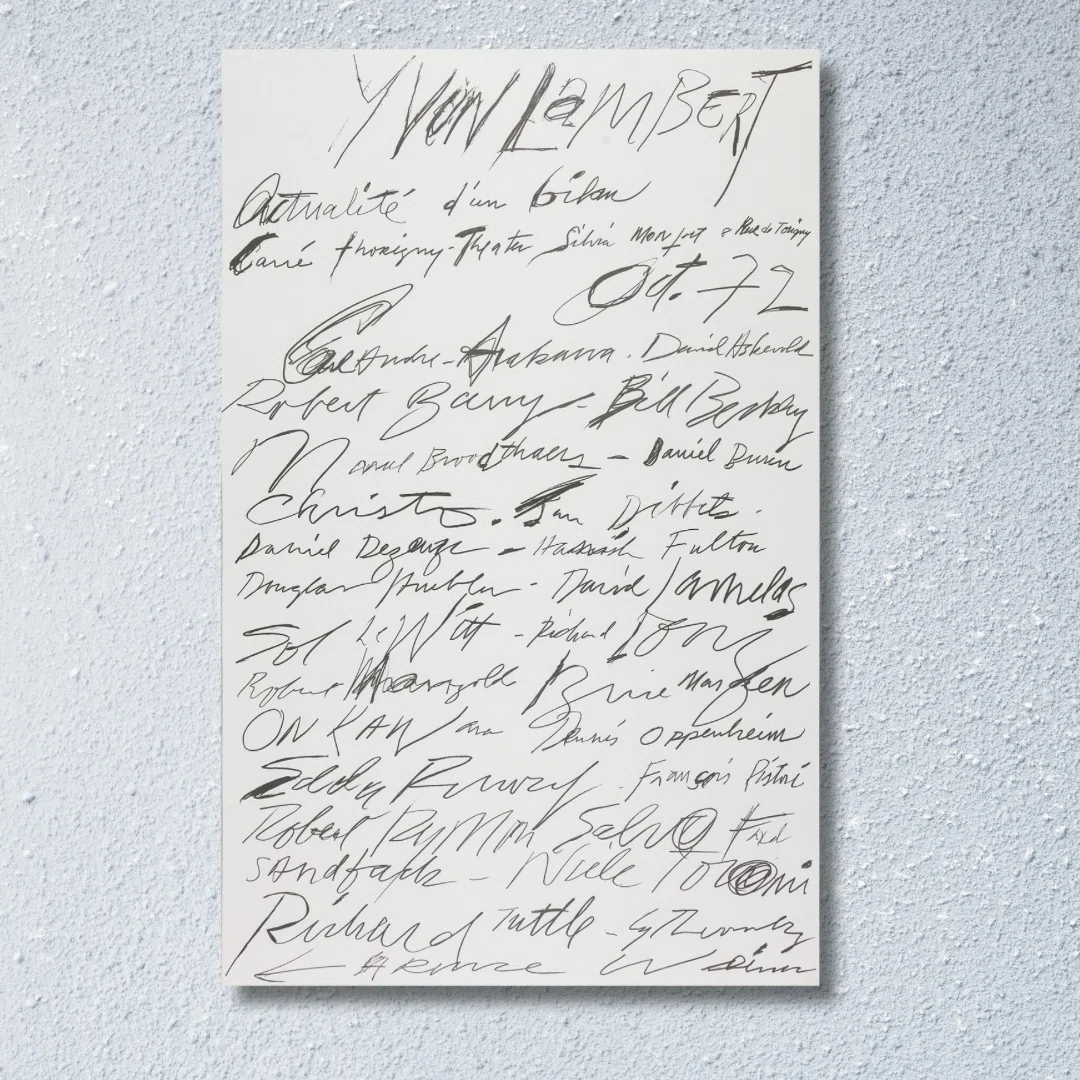 YVON LaMBERT
Actualité d'un bilan
Carré Thorigny-Theater Silvia Monfort 8 Rue de Torigny
Oct. 72
Carl Andre - Arakawa. David Askevold
Robert Barry - Bill Beckley
Marcel Broodthaers - Daniel Buren
Christo. Jan Dibbets.
Daniel Dezeuze - Hamish Fulton
Douglas Huebler - David Lamelas
Sol LeWitt - Richard Long
Robert Mangold Brice Marden
ON KAWara Dennis Oppenheim
Edda Renouf. François Ristori
Robert RyMan Salvo Fred
SANdback - Niele Toroni
Richard Tuttle - Cy Twombly
LAWRENCE Weiner